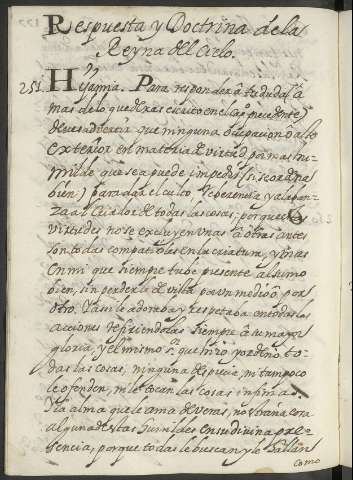 Respuesta y Doctrina de la
Reyna del Cielo.
251. Hija mia. Para responder a tu duda (a
mas de lo que dexas escrito en el cap.º precedente)
debes advertir que ninguna ocupacion o acto
exterior en materia de virtud por mas hu-
milde que sea puede impedir (si se ordena
bien) para dar el culto reverencia y alaban-
za al Criador de todas las cosas; porque estas
virtudes no se excluyen unas a otras antes
son todas compatibles en la criatura, y mas
en mi que siempre tube presente al sumo
bien, sin perderle de vista por un medio o por
otro. Y assi le adoraba y respetaba en todas las
acciones refiriendolas siempre a su mayor
gloria; y el mismo s.r que hizo y ordeno to-
das las cosas, ninguna desprecia, ni tampoco
le ofenden, ni le tocan las cosas infimas.
Y la alma que le ama de veras, no estraña cosa
alguna de estas humildes en su divina pre-
sencia, porque todas le buscan y le hallan
como